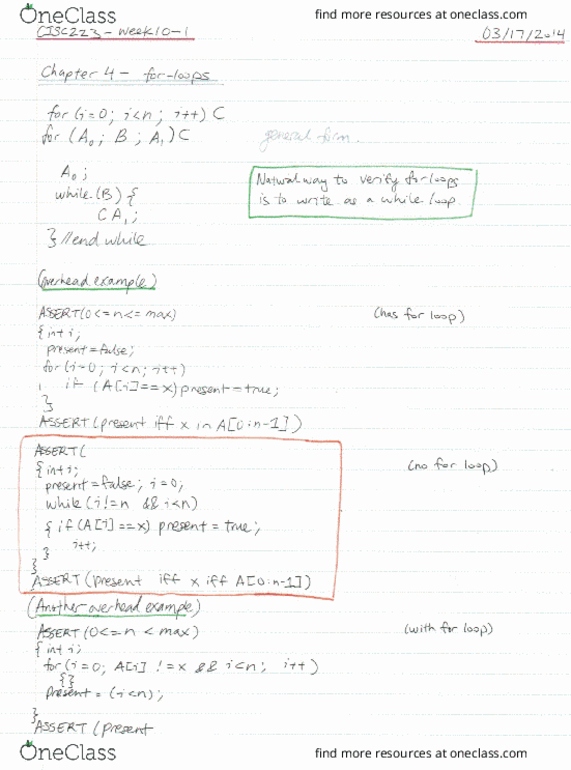 OneClass
find more resources at oneclass.com
CISC223 - week10-1
03/17/2014
Chapter 4 - for-loops
for (i=0; i<n; i++) C
for (A0; B; A1) C
general form.
A0;
while (B) {
C A1;
} //end while
Natural way to verify for loops
is to write as a while loop.
(overhead example)
ASSERT(0<=n<=max)
(has for loop)
{ int i;
present = false;
for (i=0; i<n; i++)
if (A[i]==x) present = true;
}
ASSERT (present iff x in A[0:n-1])
ASSERT(
(no for loop)
{ int i;
present = false; i=0;
while (i!=n && i<n)
{ if (A[i]==x) present = true;
i++;
}
}
ASSERT (present iff x iff A[0:n-1])
(Another overhead example)
ASSERT (0<=n<max)
(with for loop)
{ int i;
for (i=0; A[i] != x && i<n; i++)
{}
present = (i<n);
}
ASSERT (present
OneClass
find more resources at oneclass.com